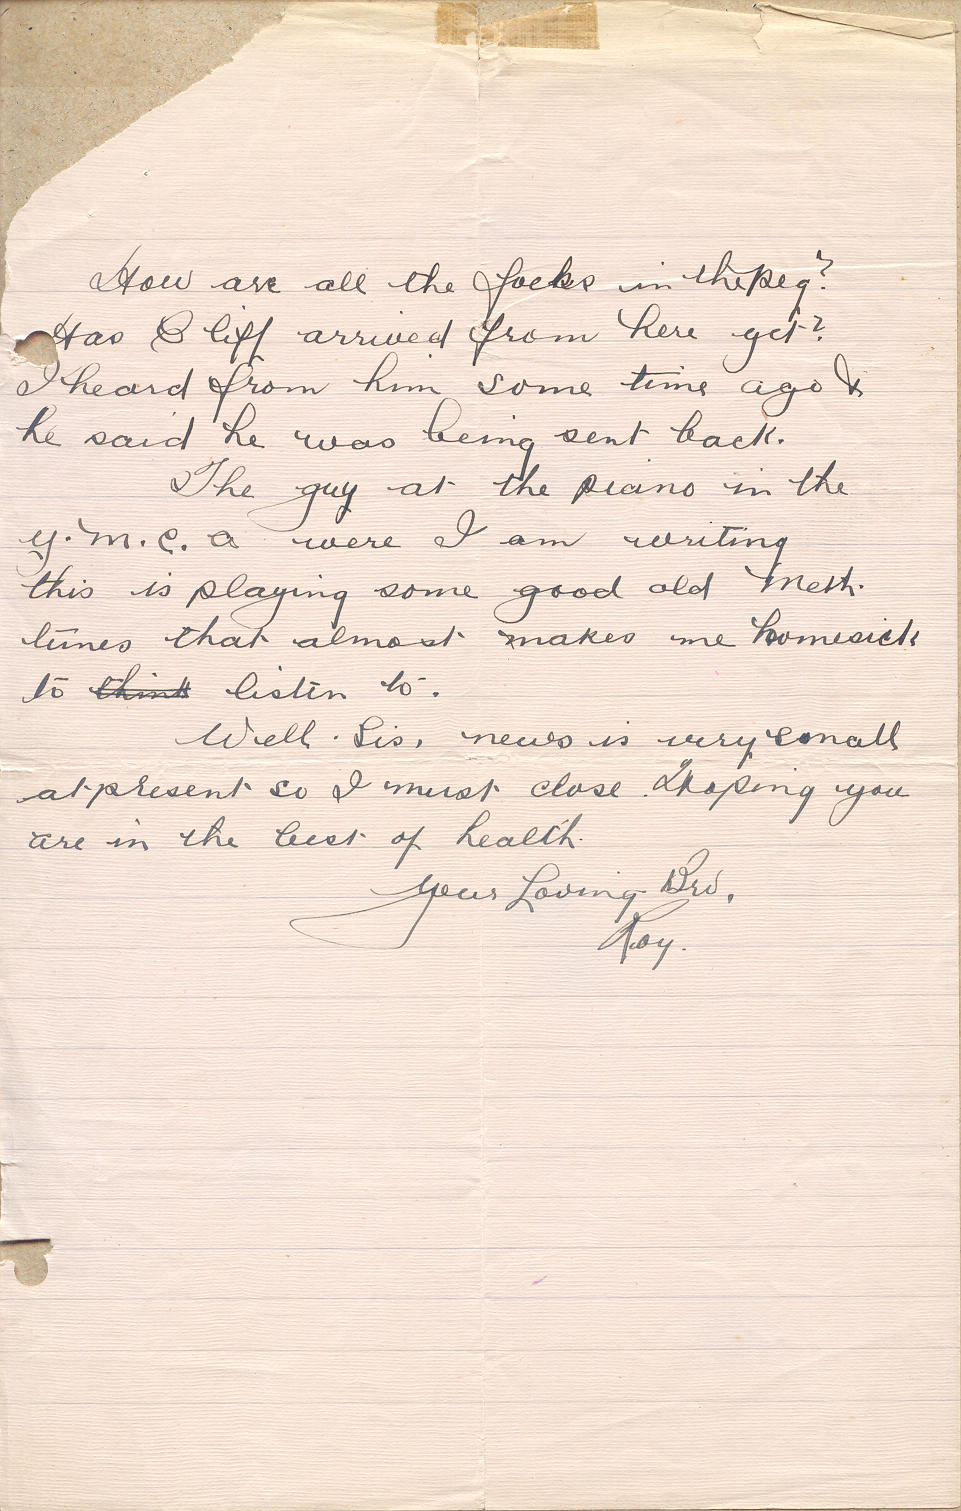 How are all the folks in the peg?
Has Cliff arrived from here yet?
I heard from him some time ago &
he said he was being sent back.
The guy at the piano in the
Y.M.C.A were I am writing
this is playing some good old Meth.
tunes that almost makes me homesick
to think listen to.
Well Sis, news is very small
at present so I must close. Hoping you
are in the best of health.
Your Loving Bro,
Roy.